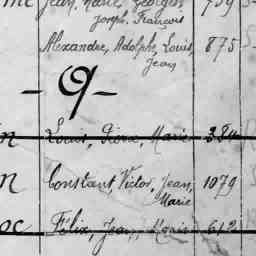 Jean, Marie, Georges 759
Joseph, François
Alexandre, Adolphe, Louis, 875
Jean
-O-
Louis, Pierre, Marie 384
Constant, Victor, Jean, 1079
Marie
Félix, Jean, Marie 612